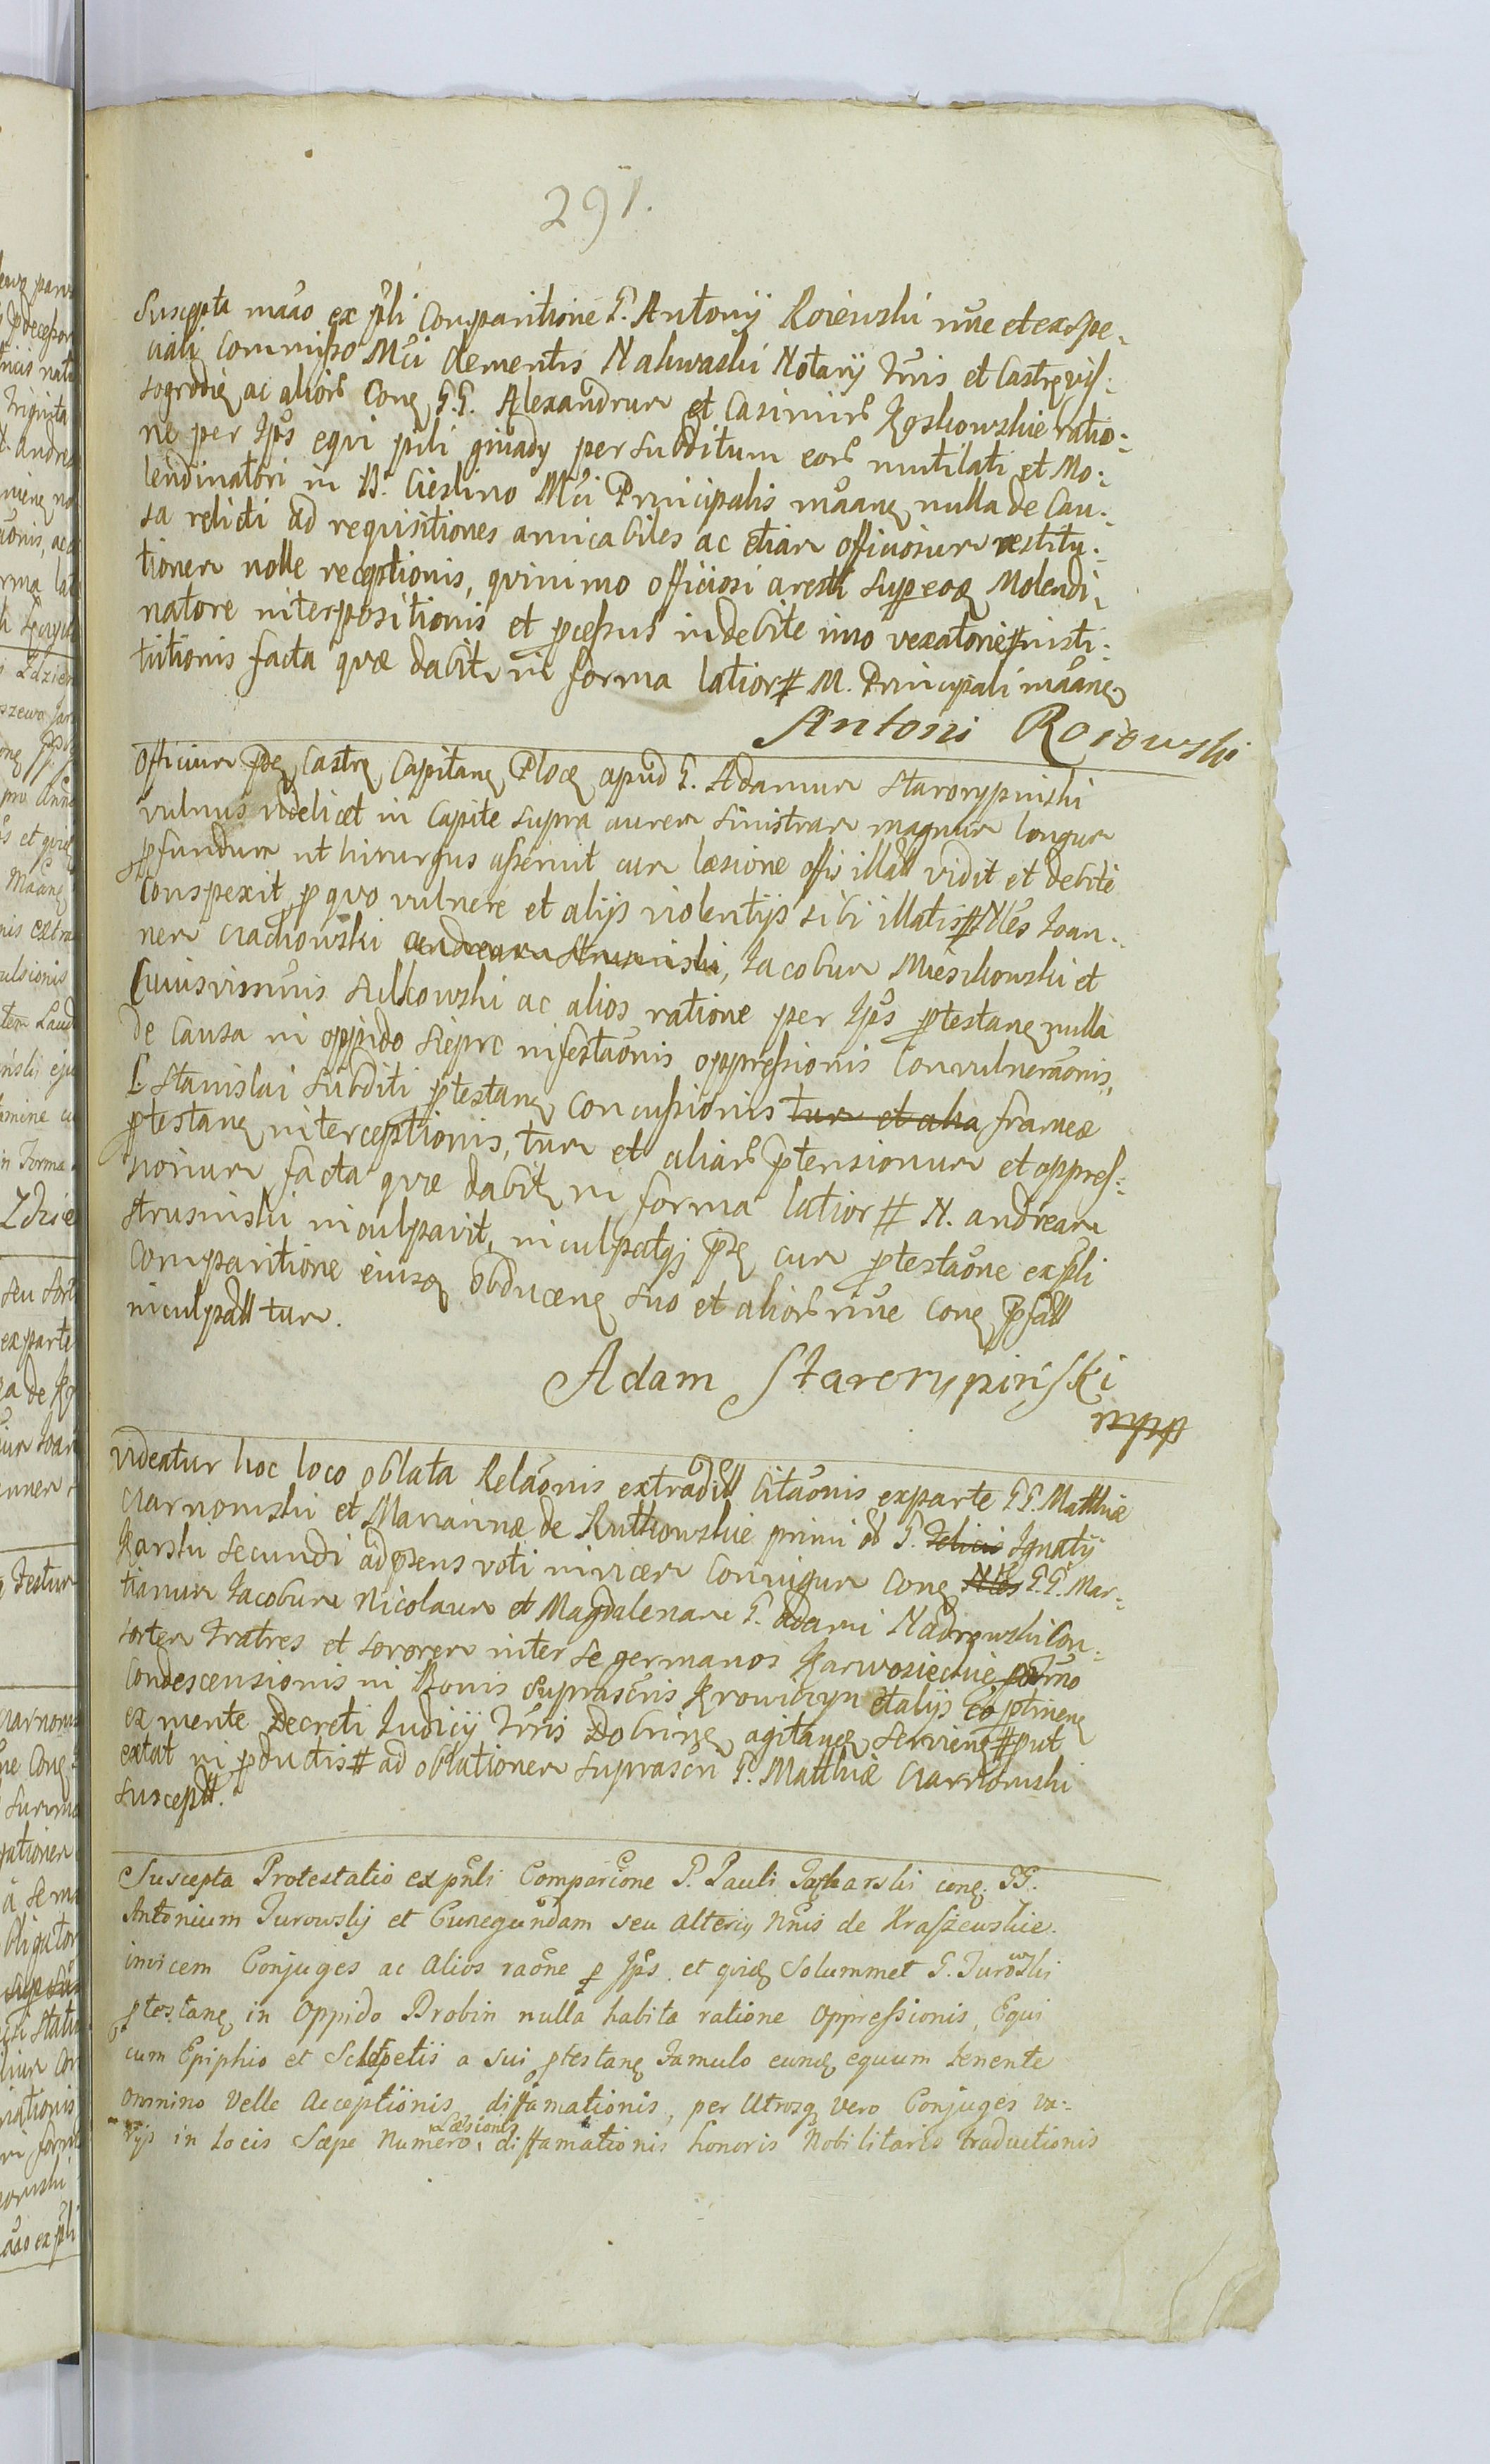 291.
Suscepta mãão ex pñli Comparitione G. Antonij Roiewski nñe et ex spe-
ciali Commisso Mci Clementis Nakwaski Notarij Trris et Castreñ Wis:
sogrodieñ ac alior Coñ G.G. Alexandrum et Casimir Kgoskowskie ratio:
ne per Ipos equi pili gniady per subditum eor mutilati et Mo:
lendinatori in B. Cieslino Mci Principalis mãaneñ nulla de Cau:
sa relicti ad requisitiones amicabiles ac etiam officiosum restitu:
tionem nolle receptionis, quinimo officiosi aresti super eoq Molendi:
natore interpositionis et pcessus indebite imo vexatorie # insti:
tutionis facta quæ dabitr in forma latior # M. Principali mãaneñ
Antoni Roiewski
Officium Pñs Castr Capitan Ploceñ apud G. Adamum Starorypinski
vulnus videlicet in Capite supra aurem sinistram magnum longum
pfundum ut hirurgus asseruit cum læsione ossis illatt vidit et debite
Conspexit, p quo vulnere et alijs violentijs sibi illatis # Nles Joan:
nem Ciachowski andream Strusinski, Jacobum Mieszkowski et
Cuiusvis nnis Sulkowski ac alios ratione per Ipos ptestanẽ nulla
de Causa in oppido Sieprc infestaõnis oppressionis Convulneraõnis,
L. Stanislai subditi ptestanẽ Concussionis tum et alia frameæ
ptestanẽ interceptionis, tum et aliar ptensionum et oppres:
sionum facta quæ dabitr in forma latior # N. andream
Strusinski inculpavit, inculpatqz pñs cum ptestaõne ex pñli
Comparitione eiusq obducenẽ suo et alior nñe Coñ pfatt
inculpatt tum.
Adam Starorypiński
mpp
videatur hoc loco oblata Relaõnis extraditt Citaõnis ex parte G.G. Matthiæ
Czarnomski et Mariannæ de Rutkowskie primi olim G. Felicis Ignatij
Karski secundi ad præsens voti invicem Coniugum Coñ Nles G.G. Mar:
tianum Jacobum Nicolaum et Magdalenam G. Adami Nadrowski Con:
sortem fratres et sororem inter se germanos Karwosieckie, pñtmo
Condescensionis in Bonis suprascris Krowiczyn et alijs eo ptinenẽ
ex mente Decreti Judicij Trris Dobrineñ agitanẽ servienẽ # put
extat in pductis # ad oblationem suprascri G. Matthiæ Czarnomski
suscept.
Suscepta Protestatio ex pñli Comparicõne G. Pauli Jasharski conẽ. GG.
Antonium Jurowskij et Cunegundam seu alteriq Nnis de Kraszewskie.
invicem Conjuges ac alios raõne p Ipos et quidẽ solummet G. Jurowski
ptestanẽ in Oppido Drobin nulla habita ratione oppressionis, Equi
cum Epiphio et Sclopetis a sui ptestanẽ famulo eundẽ equum tenente
omnino velle acceptionis diffamationis, per Utrosqz vero Conjuges va:
rijs in locis sæpe numero, læsionis diffamationis honoris Nobilitaris traductionis